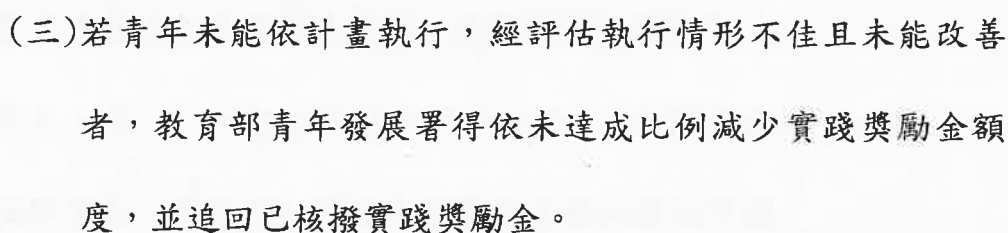 (三)若青年未能依計畫執行，經評估執行情形不佳且未能改善
者，教育部青年發展署得依未達成比例減少實踐獎勵金額
度，並追回已核撥實踐獎勵金。